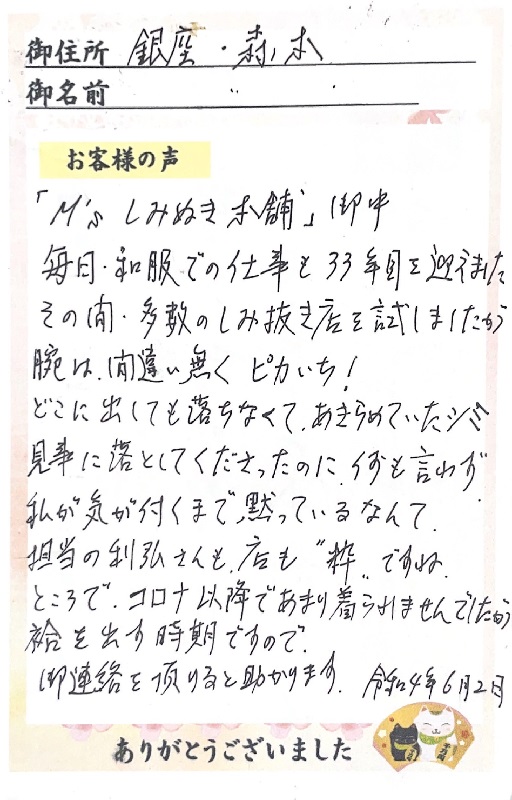 御住所 銀座・森本
御名前
お客様の声
「M'sしみぬき本舗」御中
毎日・和服での仕事も33年目を迎えました
その間・多数のしみ抜き店を試しましたが
腕は、間違い無くピカいち!
どこに出しても落ちなくて、あきらめていたシミ
見事に落としてくださったのに、何も言わず
私が気が付くまで、黙っているなんて、
担当の利弘さんも、店も"粋"ですね、
ところで、コロナ以降であまり着られませんでしたが
袷を出す時期ですので、
御連絡を頂けると助かります、 令和4年6月2日
ありがとうございました